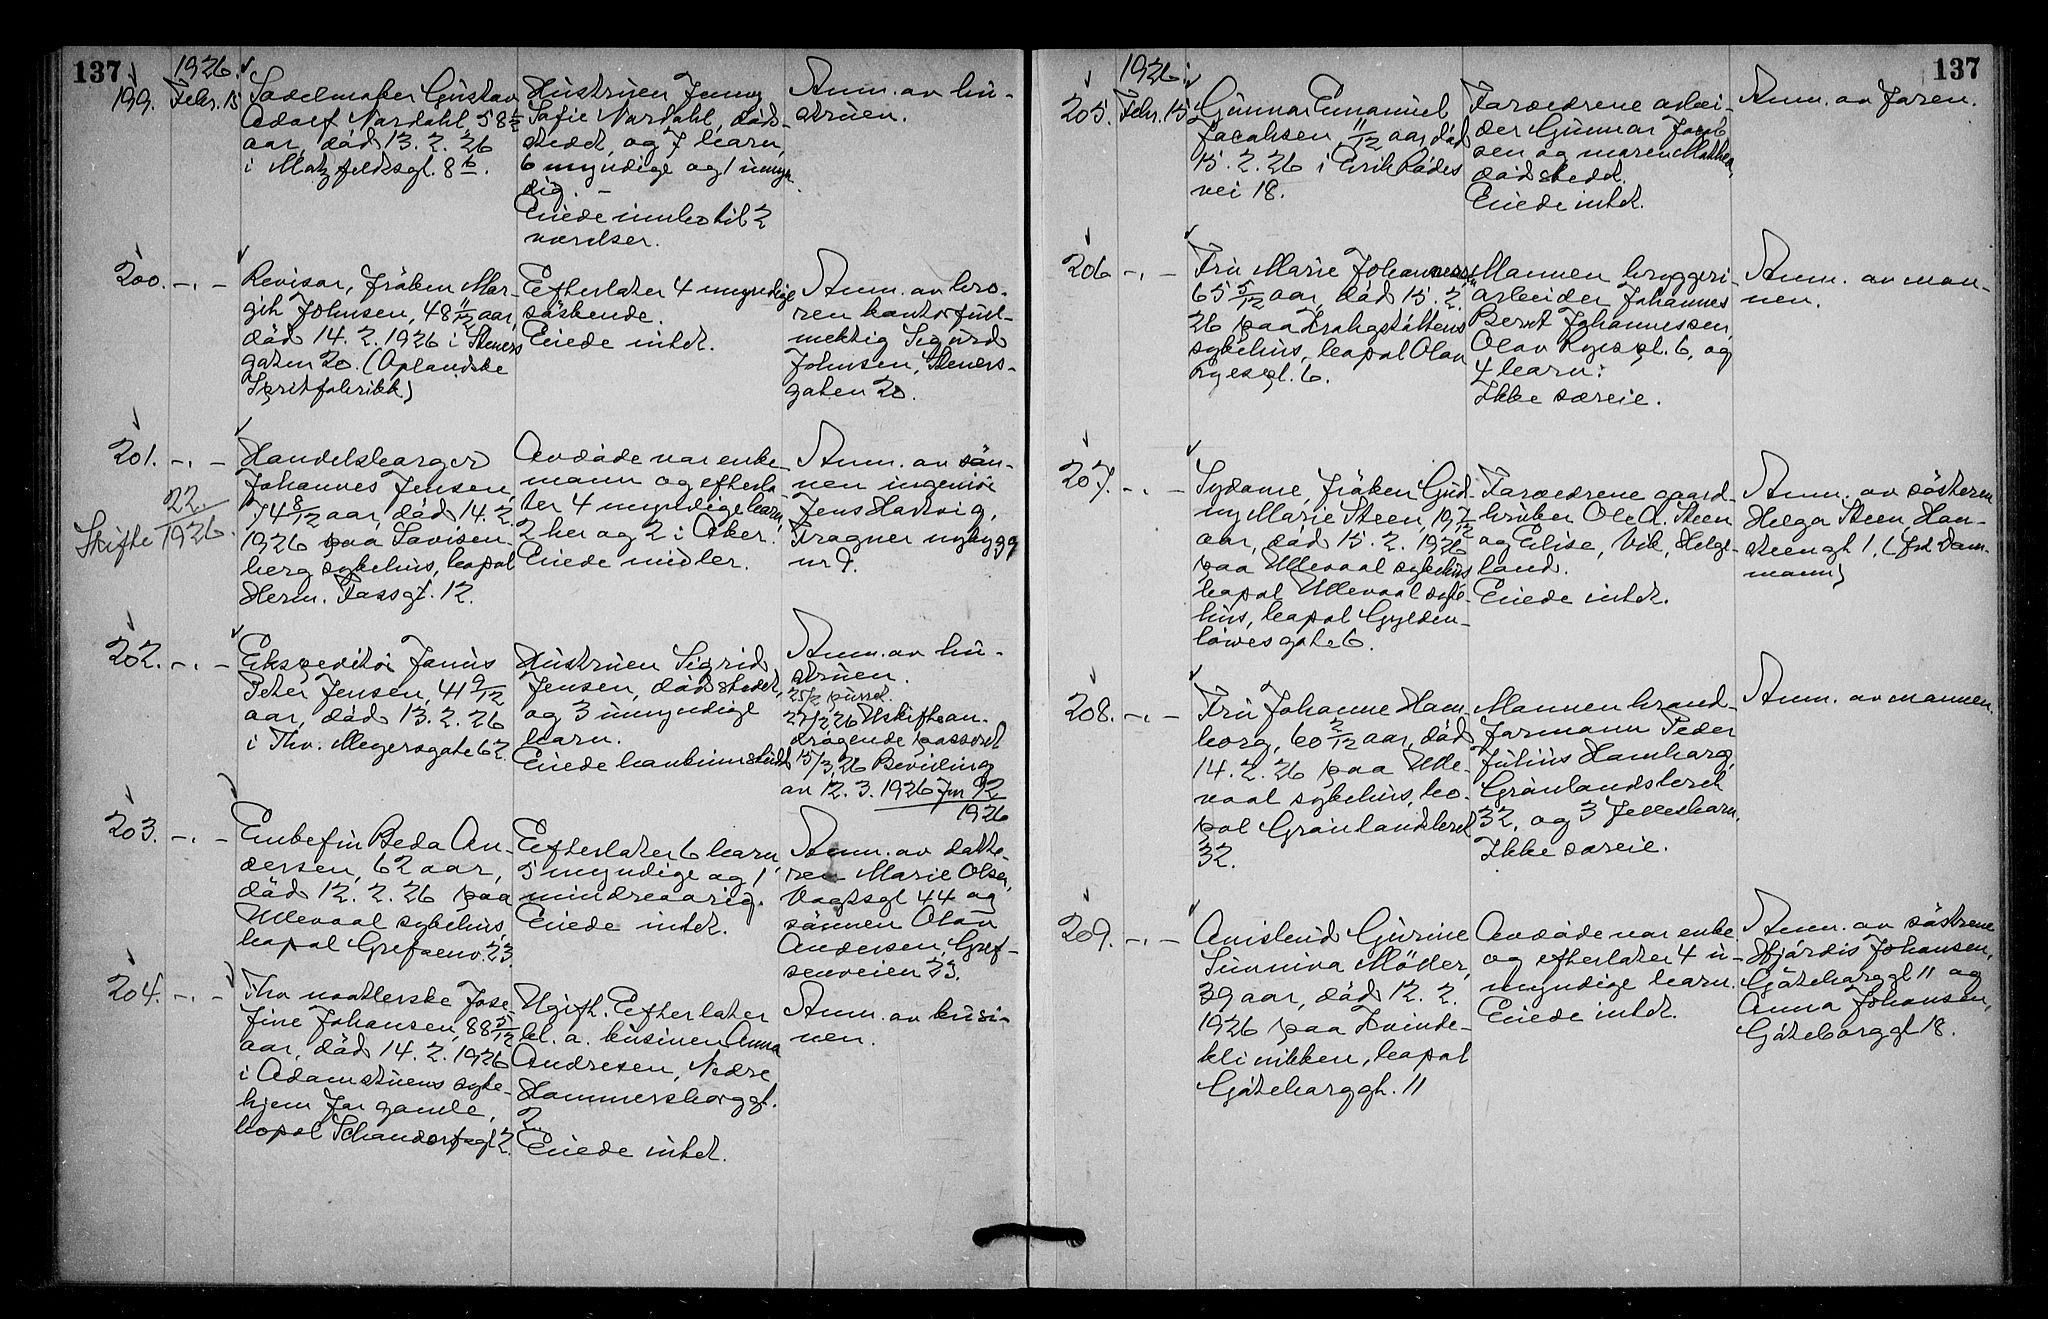 137
1926.
199. Febr. 15
Sadelmaker Gustav
Adolf Nordahl, 58 1/2
aar, död 13. 2. 26
i Motzfeldtsgt. 8 b.
Hustruen Jenny
Sofie Nordahl, döds-
stedet, og 7 barn,
6 myndige og 1 umyn-
dig. -
Eiede innbo til 2
værelser.
Anm. av hu-
struen.
200. -.-
Revisor, fröken Mar-
git Johnsen, 48 11/12 aar,
död 14. 2. 1926 i Steners
gaten 20. (Oplandske
Spritfabrikk)
Efterlater 4 myndige
söskende.
Eiede intet.
Anm. av bro-
ren kontorfull-
mektig Sigurd
Johnsen, Steners-
gaten 20.
201. -.-
Skifte 22/1926.
Handelsborger
Johannes Jensen,
74 8/12 aar, död 14. 2.
1926 paa Lovisen-
berg sykehus, bopæl
Herm. Fossgt. 12.
Avdöde var enke-
mann og efterla-
ter 4 myndige barn,
2 her og 2 i Aker.
Eiede midler.
Anm. av sön-
nen ingeniör
Jens Hartvig,
Frogner nybygg
nr 9.
202. -.-
Ekspeditör Janus
Peter Jensen, 41 9/12
aar, död 13. 2. 26
i Thv. Meyersgate 62
Hustruen Sigrid
Jensen, dödstedet,
og 3 umyndige
barn.
Eiede bankinnskudd
Anm. av hu-
struen.
25/2 purret
27/2 26 Uskiftean-
dragende passeret
15/3 26 Bevilling
av 12. 3. 1926 Jnr 92
1926
203. -.-
Enkefru Beda An-
dersen, 62 aar,
död 12. 2. 26 paa
Ullevaal sykehus,
bopæl Grefsenv. 23.
Efterlater 6 barn
5 myndige og 1
mindreaarig.
Eiede intet.
Anm. av datte-
ren Marie Olsen,
Vogtsgt 44 og
sönnen Olav
Andersen, Gref-
senveien 23.
204. -.-
Fhv vaatlerske Jose-
fine Johansen, 88 5/12
aar, död 14. 2. 1926
i Adamstuens syke-
hjem for gamle,
bopæl Schandorfsgt 2.
Ugift. Efterlater
bl. a. kusinen Anna
Andresen, Nedre
Hammersborggt.
2.
Eiede intet.
Anm. av kusi-
nen.
137
1926.
205. Febr. 15
Gunnar Emanuel
Jacobsen, 11/12 aar, död
15. 2. 26 i Erik Rödes
vei 18.
Forældrene arbei-
der Gunnar Jacob-
sen og Maren Mathea,
dödstedet.
Eiede intet.
Anm. av faren.
206 -.-
Fru Marie Johannessen
65 5/12 aar, död 15. 2.
26 paa Krohgstöttens
sykehus, bopæl Olav
Ryes pl. 6.
Mannen bryggeri-
arbeider Johannes
Bernt Johannessen,
Olav Ryes pl. 6, og
4 barn:
Ikke særeie.
Anm. av man-
nen.
207. -.-
Sydame, fröken Gud-
ny Marie Steen, 19 7/12
aar, död 15. 2. 1926
paa Ullevaal sykehus
bopæl Ullevaal syke-
hus, bopæl Gylden-
löwes gate 6.
Forældrene gaard-
bruker Ole A. Steen
og Elise, Vik, Helge-
land.
Eiede intet.
Anm. av sösteren
Helga Steen, Han-
steengt 1, (frk Dam-
mann)
208. -.-
Fru Johanne Ham-
borg, 60 2/12 aar, död
14. 2. 26 paa Ulle-
vaal sykehus, bo-
pæl Grönlandsleret
32.
Mannen brand-
formann Peder
Julius Hamborg,
Grönlandsleret
32, og 3 fellesbarn.
Ikke særeie.
Anm. av mannen.
209. -.-
Avisbud Gurine
Sunniva Möller,
39 aar, död 12. 2.
1926 paa Kvinde-
klinikken, bopæl
Göteborggt. 11
Avdöde var enke
og efterlater 4 u-
myndige barn.
Eiede intet.
Anm. av söstrene
Hjördis Johansen,
Göteborggt 11 og
Anna Johansen,
Göteborggt 18.